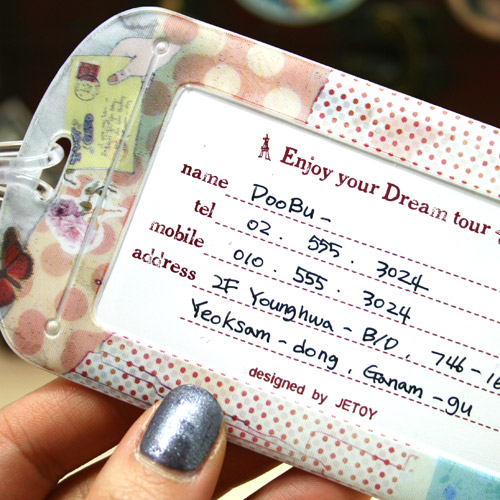 Enjoy your Dream tour
name DooBu-
tel 02. 555. 3024
mobile 010. 555. 3024
address 2F Younghwa-B/D, 746-16
Yeoksam-dong, Ganam-gu
designed by JETOY